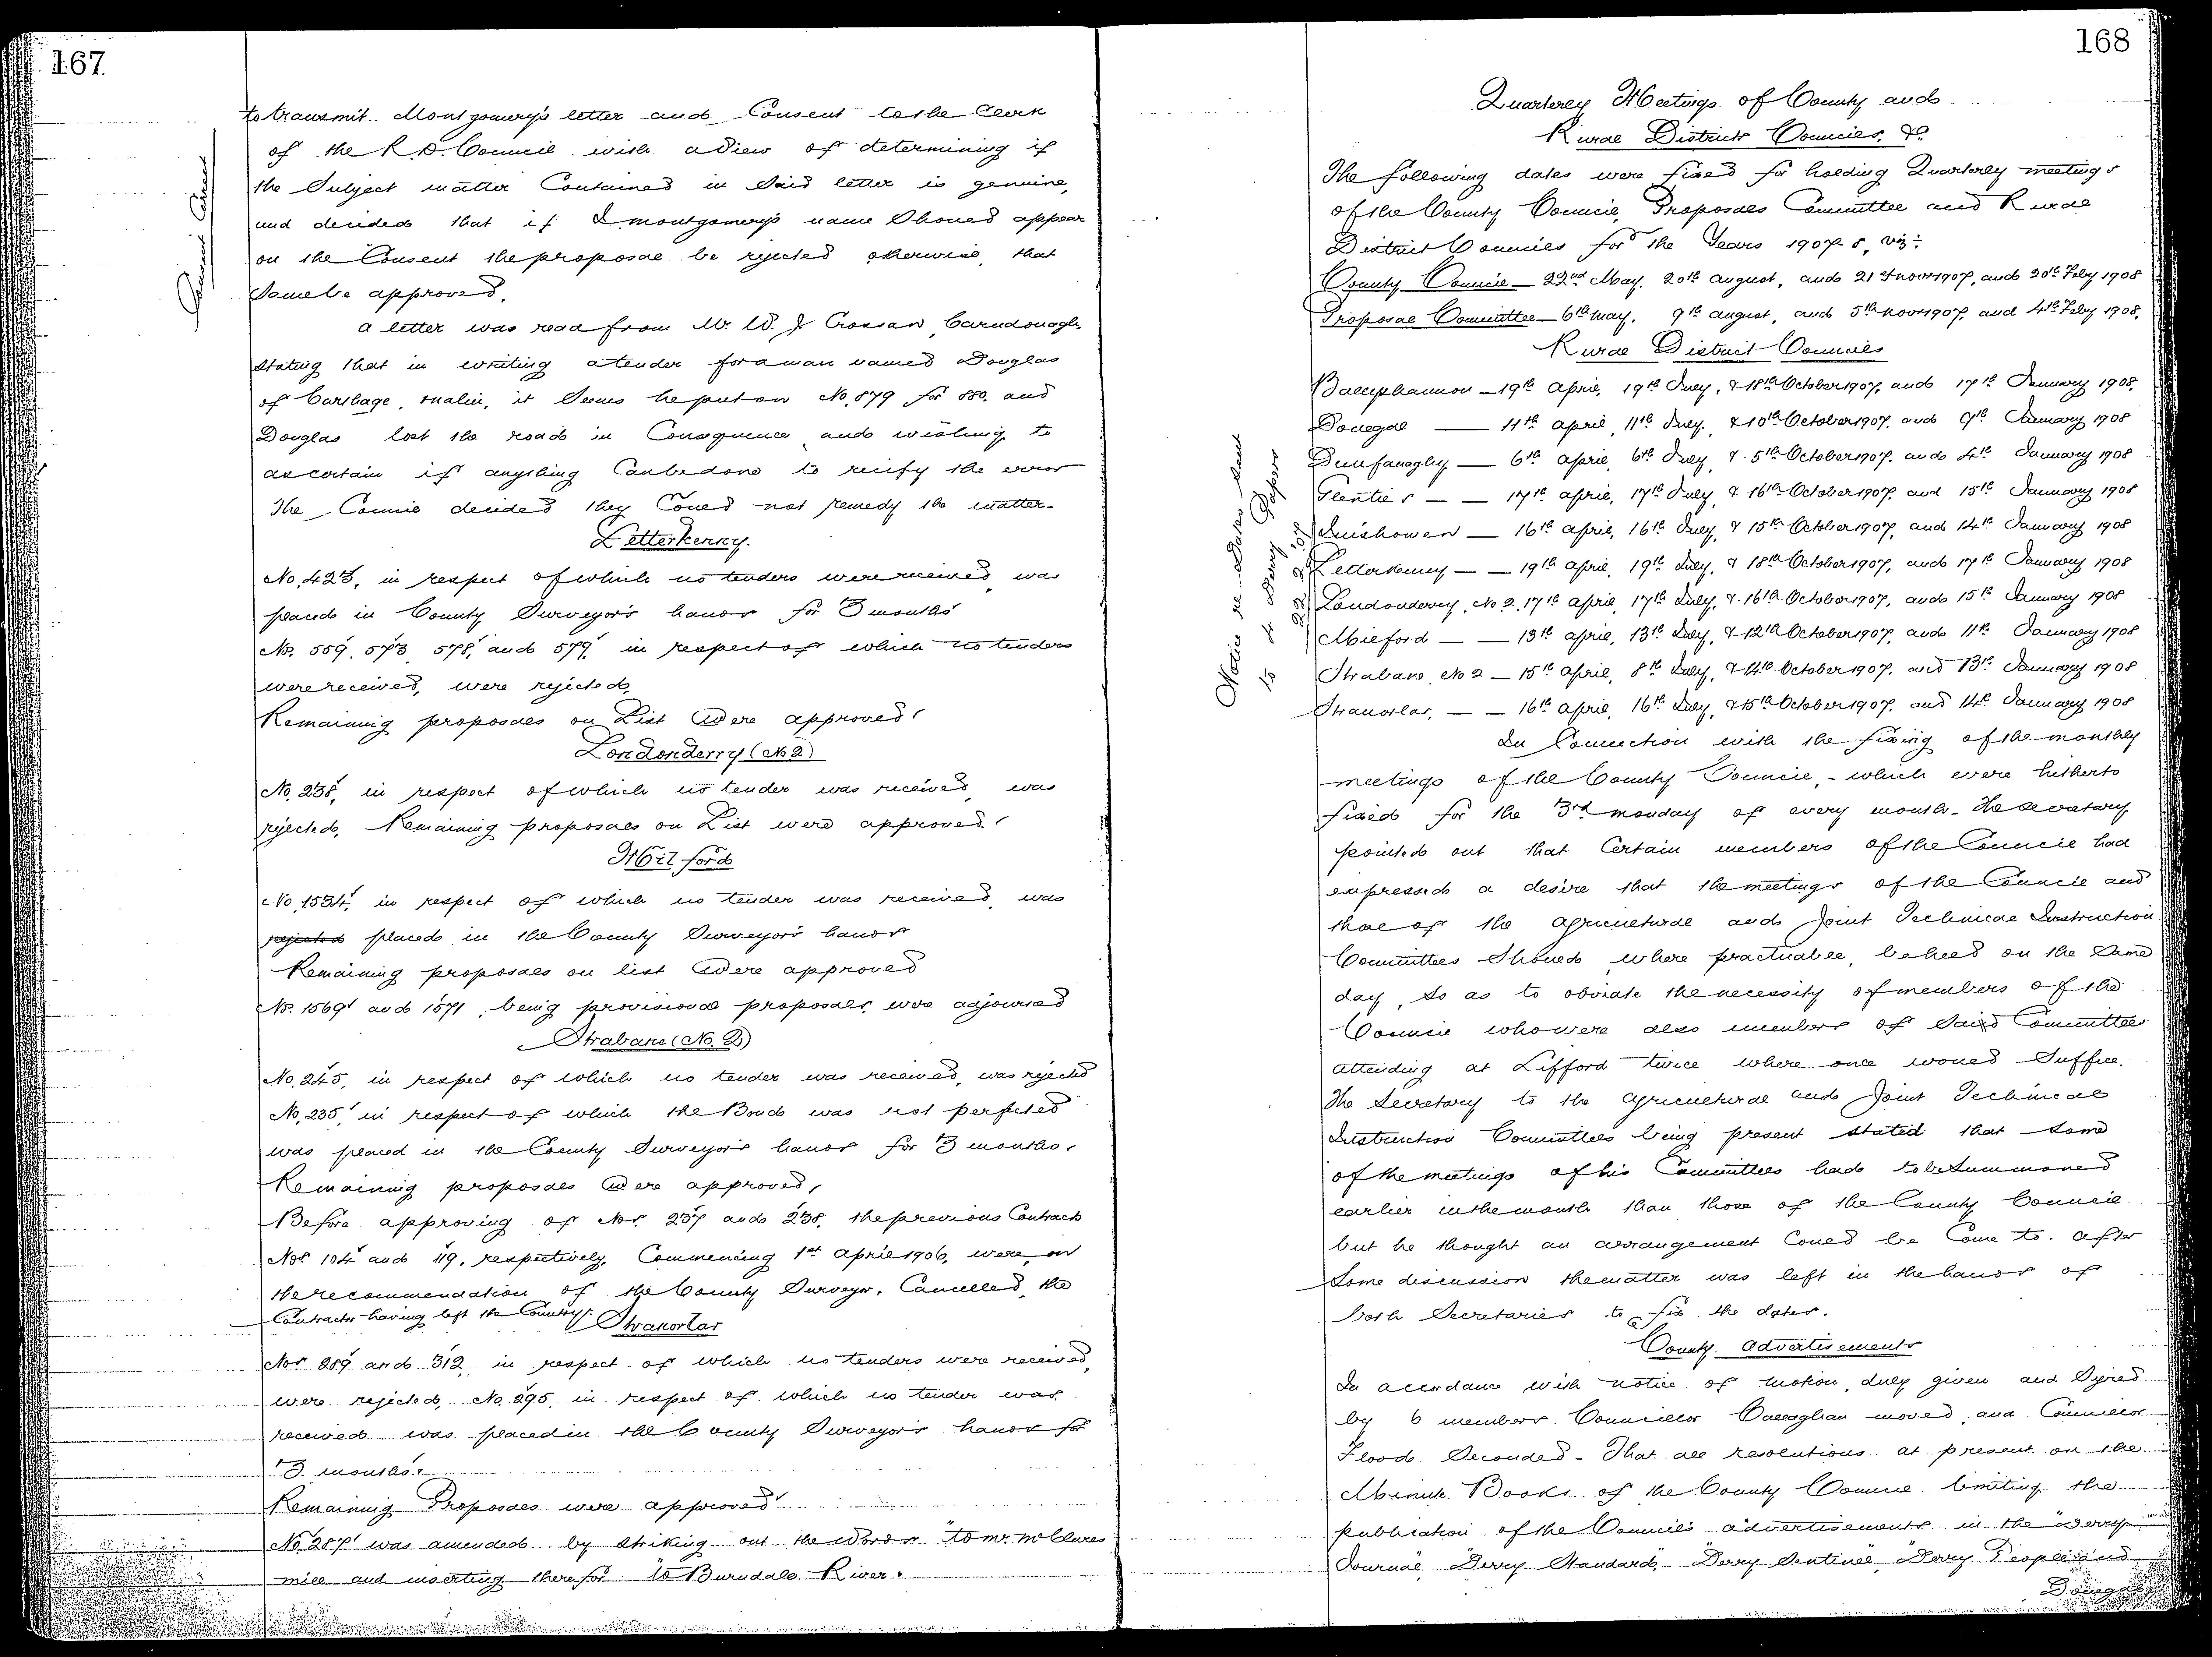 167
to transmit Montgomery's letter and Consent to the Clerk
of the R.D. Council with a view of determining if
the Subject matter Contained in Said letter is genuine,
and decided that if Montgomery's name Should appear
on the Consent the proposal be rejected otherwise, that
Same be approved.
A letter was read from Mr. W. J Crossan, Carndonagh,
Stating that in writing a tender for a man named Douglas
of Carthage, Malin, it Seems he put on No. 879 for 880. and
Douglas lost the road in Consequence and wishing to
ascertain if anything Can be done to recify the error
The Council decided they Could not remedy the matter.
Letterkenny.
No. 423, in respect of which no tenders were received, was
placed in County Surveyor's hands for 3 months
Nos. 559, 573, 578, and 579, in respect of which no tenders
were received, were rejected.
Remaining proposals on List Were approved.
Londonderry (No 2)
No. 238, in respect of which no tender was received, was
rejected. Remaining proposals on List were approved.
Milford
No. 1534, in respect of which no tender was received, was
rejected placed in the County Surveyor's hands
Remaining proposals on list Were approved
Nos. 1569 and 1571, being provisional proposals, were adjourned
Strabane (No. 2)
No. 245, in respect of which no tender was received, was rejected
No. 235, in respect of which the Bond was not perfected
was placed in the County Surveyor's hands for 3 months.
Remaining proposals Were approved,
Before approving of Nos. 237 and 238, the previous Contracts
Nos 104 and 119, respectively, Commencing 1st April 1906, were, on
the recommendation of the County Surveyor, Cancelled, the
Contractor having left the Country.
Stranorlar
Nos 289 and 312, in respect of which no tenders were received,
were rejected, No. 295, in respect of which no tender was
received was placed in the County Surveyor's hands for
3 months.
Remaining Proposals were approved
No 287 was amended by Striking out the Words "to Mr. McClures
mill and inserting therefor "to Burndale River.
168
Quarterly Meetings of County and
Rural District Councils, &c.
The following dates were fixed for holding Quarterly meetings
of the County Council, Proposals Committee and Rural
District Councils for the Years 1907-8, viz:-
County Council — 22nd May, 20th August, and 21st Novr 1907, and 20th Feby 1908
Proposal Committee — 6th May, 9th August, and 5th Novr 1907, and 4th Feby 1908,
Rural District Councils
Ballyshannon — 19th April, 19th July, & 18th October 1907, and 17th January 1908,
Donegal — 11th April, 11th July, & 10th October 1907, and 9th January 1908
Dunfanaghy — 6th April, 6th July, & 5th October 1907, and 4th January 1908
Glenties — — 17th April, 17th July, & 16th October 1907, and 15th January 1908
Inishowen — 16th April, 16th July, & 15th October 1907, and 14th January 1908
Letterkenny — — 19th April, 19th July, & 18th October 1907, and 17th January 1908
Londonderry, No 2, 17th April, 17th July, & 16th October 1907, and 15th January 1908
Milford — — 13th April, 13th July, & 12th October 1907, and 11th January 1908
Strabane, No 2 — 15th April, 8th July, & 14th October 1907, and 13th January 1908
Stranorlar, — — 16th April, 16th July, & 15th October 1907, and 14th January 1908
Notice re Dates Sent
to 4 Derry Papers
In Connection with the fixing of the monthly
meetings of the County Council, - which were hitherto
fixed for the 3rd Monday of every month - The Secretary
pointed out that Certain members of the Council had
expressed a desire that the meetings of the Council and
those of the Agricultural and Joint Technical Instruction
Committees Should, where practicable, be held on the Same
day, So as to obviate the necessity of members of the
Council who were also members of Said Committees
attending at Lifford twice where once would Suffice.
The Secretary to the Agricultural and Joint Technical
Instruction Committees being present Stated that Some
of the meetings of his Committees had to be Summoned
earlier in the month than those of the County Council
but he thought an arrangement Could be Come to. After
Some discussion the matter was left in the hands of
both Secretaries to fix the dates.
County Advertisements
In accordance with notice of motion, duly given and Signed
by 6 members Councillor Callaghan moved, and Councillor
Flood Seconded - That all resolutions at present on the
Minute Books of the County Council limiting the
publication of the Council's advertisements in the "Derry
Journal", "Derry Standard", "Derry Sentinel", "Derry People and
Donegal